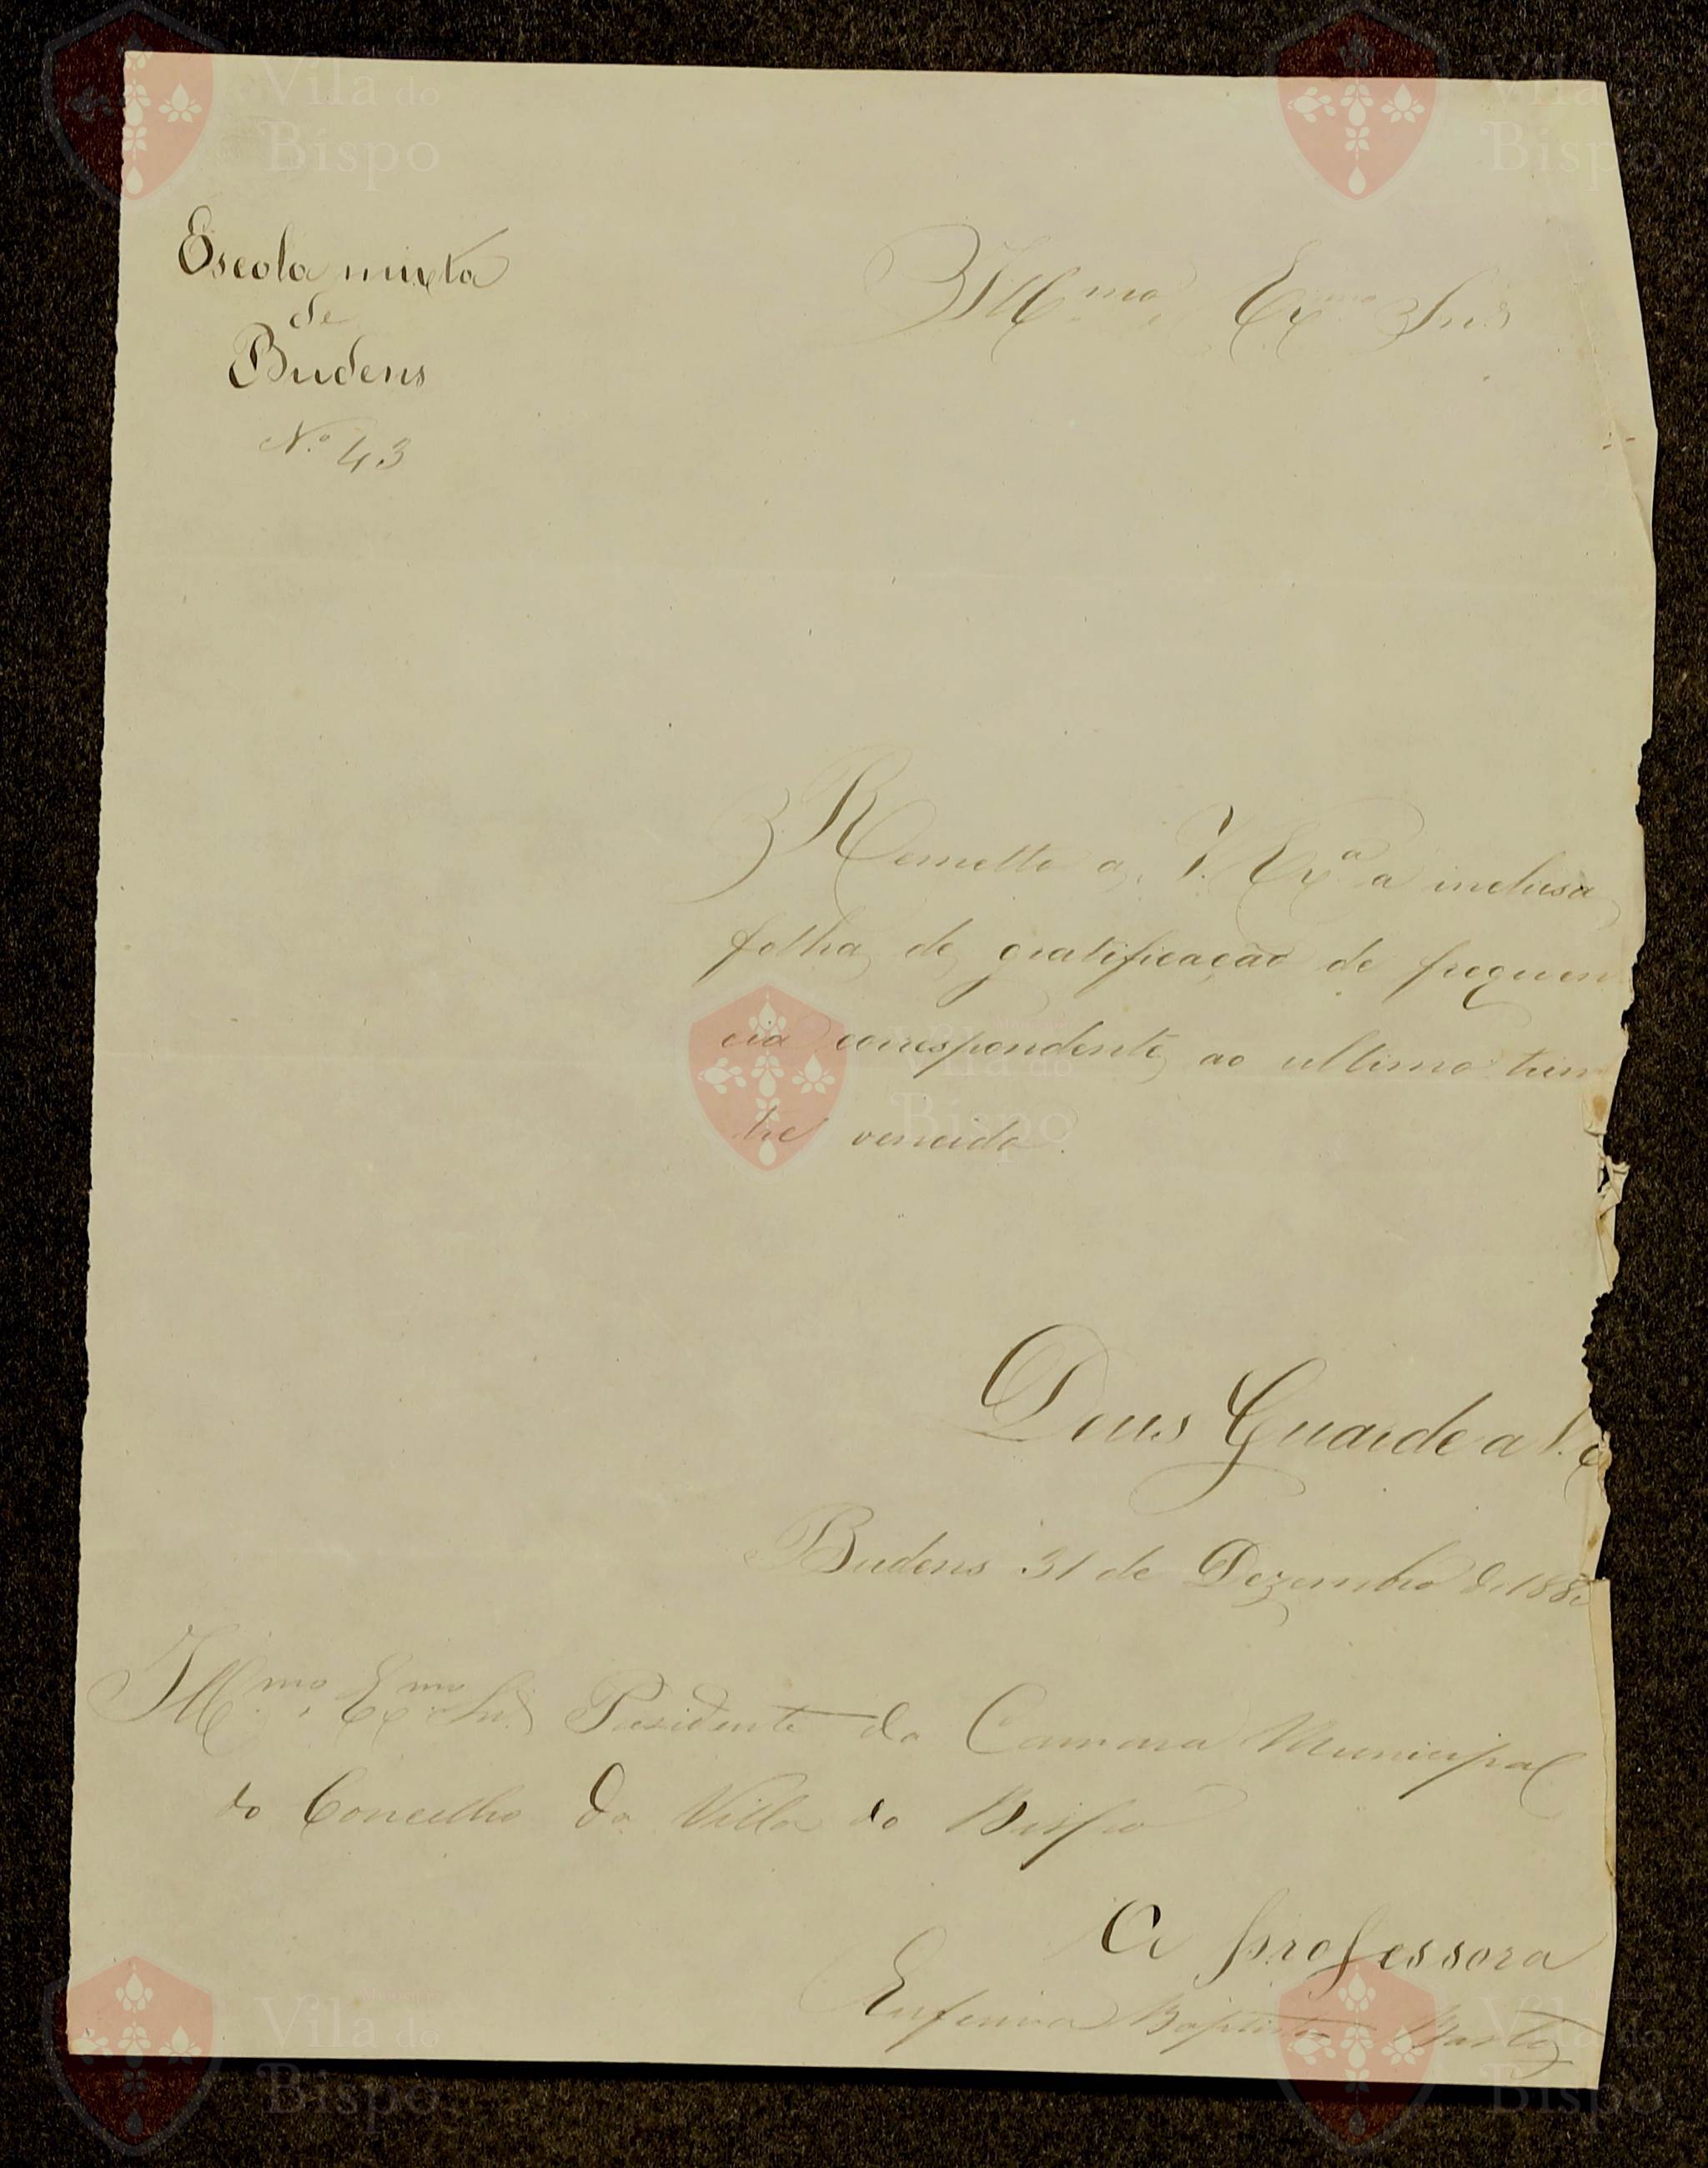 Escola mixta
de
Budens
N.º 43
Ill.mo e Ex.mo Snr.
Remetto a V. Ex.ª a inclusa
folha de gratificação de frequen
cia correspondente ao ultimo trim
tre vencido.
Deus Guarde a V. E
Budens 31 de Dezembro de 188
Ill.mo e Ex.mo Snr. Presidente da Camara Municipal
do Concelho da Villa do Bispo
A professora
Eufemia Baptista
Vila do Bispo
Vila do Bispo
Vila do Bispo
Vila do Bispo
Vila do Bispo